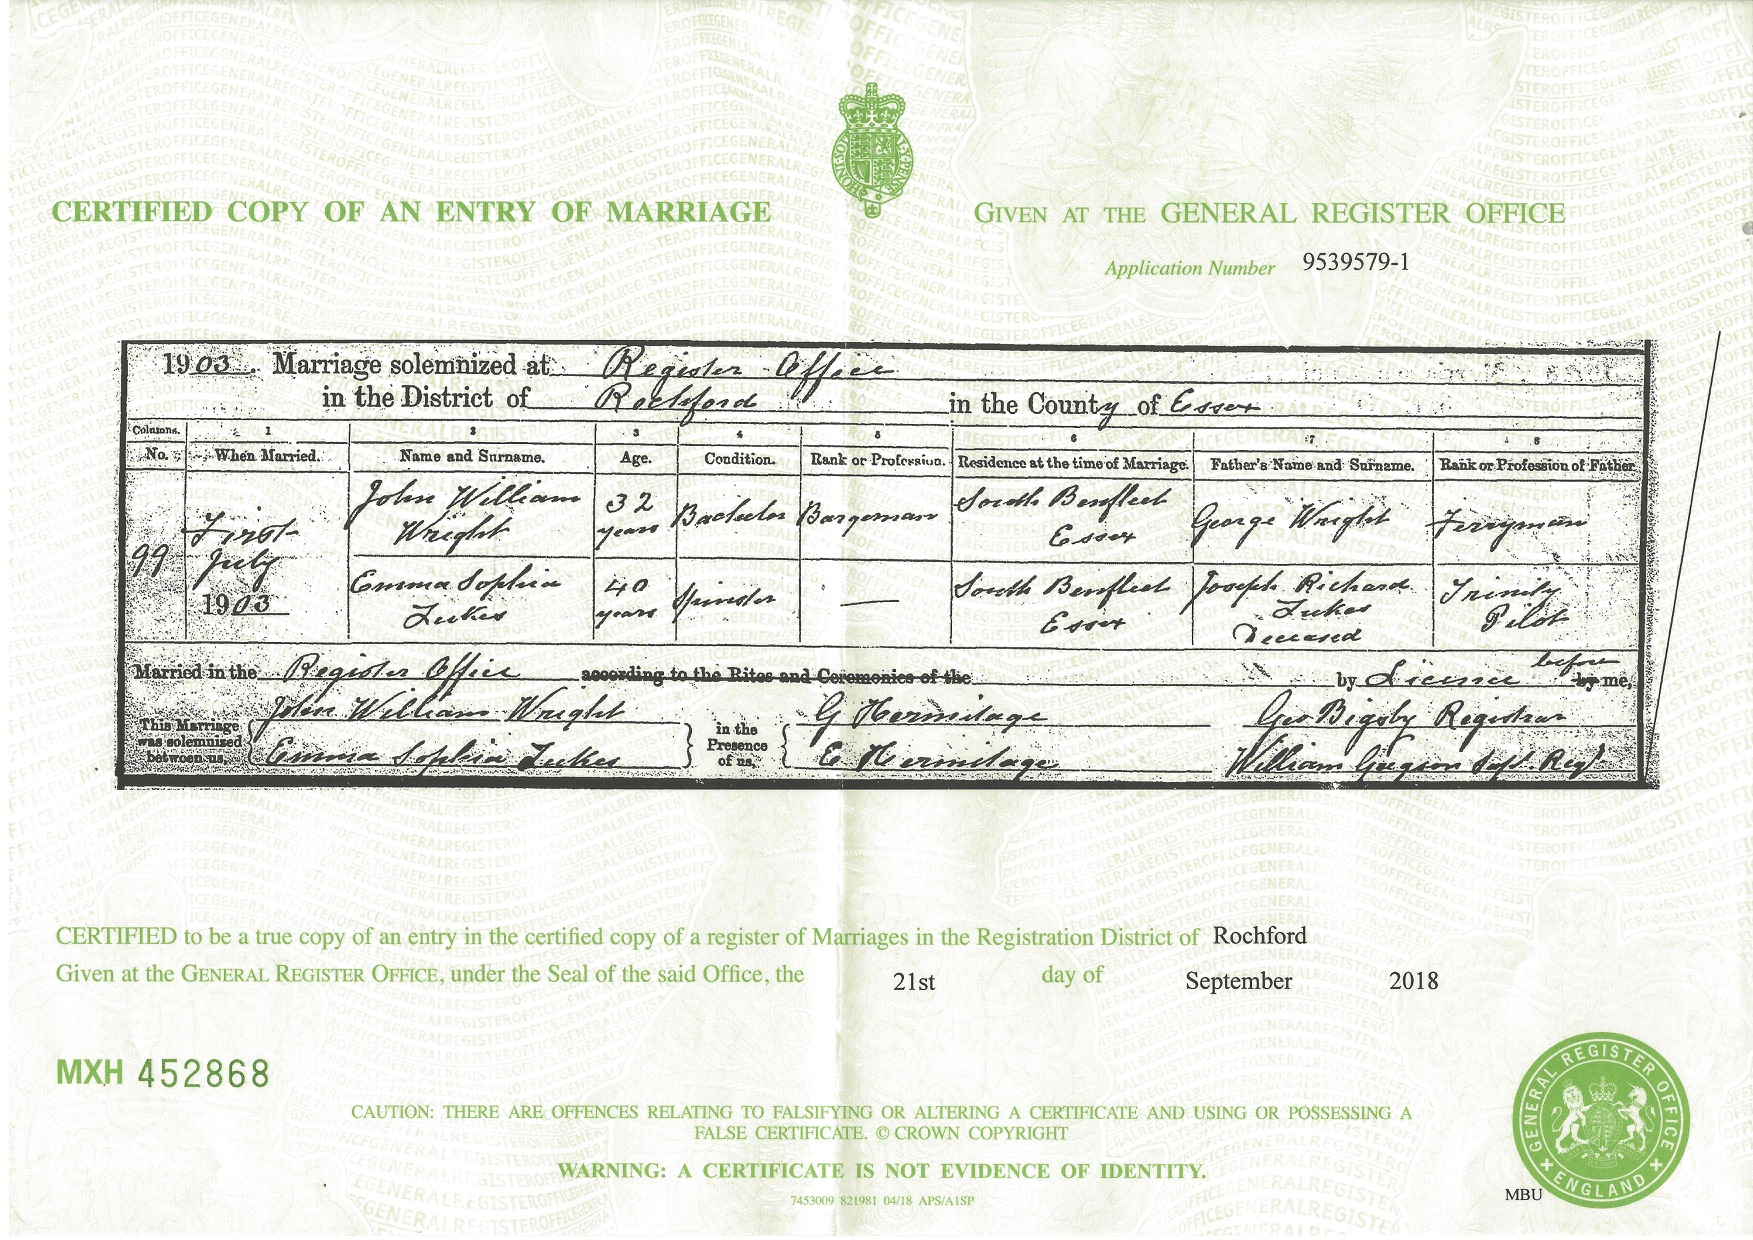 CERTIFIED COPY OF AN ENTRY OF MARRIAGE
GIVEN AT THE GENERAL REGISTER OFFICE
Application Number 9539579-1
1903. Marriage solemnized at Register Office
in the District of Rochford in the County of Essex
Columns. 1 2 3 4 5 6 7 8
No. When Married. Name and Surname. Age. Condition. Rank or Profession. Residence at the time of Marriage. Father's Name and Surname. Rank or Profession of Father.
99
First
July
1903
John William
Wright
32
years
Bachelor
Bargeman
South Benfleet
Essex
George Wright
Ferryman
Emma Sophia
Lukes
40
years
Spinster
—
South Benfleet
Essex
Joseph Richard
Lukes
Deceased
Trinity
Pilot
Married in the Register Office according to the Rites and Ceremonies of the by Licence before by me,
This Marriage was solemnized between us,
John William Wright
Emma Sophia Lukes
in the Presence of us,
G Hermitage
E. Hermitage
Geo Bigsby Registrar
William Gregson Supt. Regr
CERTIFIED to be a true copy of an entry in the certified copy of a register of Marriages in the Registration District of Rochford
Given at the GENERAL REGISTER OFFICE, under the Seal of the said Office, the 21st day of September 2018
MXH 452868
CAUTION: THERE ARE OFFENCES RELATING TO FALSIFYING OR ALTERING A CERTIFICATE AND USING OR POSSESSING A
FALSE CERTIFICATE. © CROWN COPYRIGHT
WARNING: A CERTIFICATE IS NOT EVIDENCE OF IDENTITY.
7453009 821981 04/18 APS/A1SP
MBU
GENERAL REGISTER OFFICE
ENGLAND